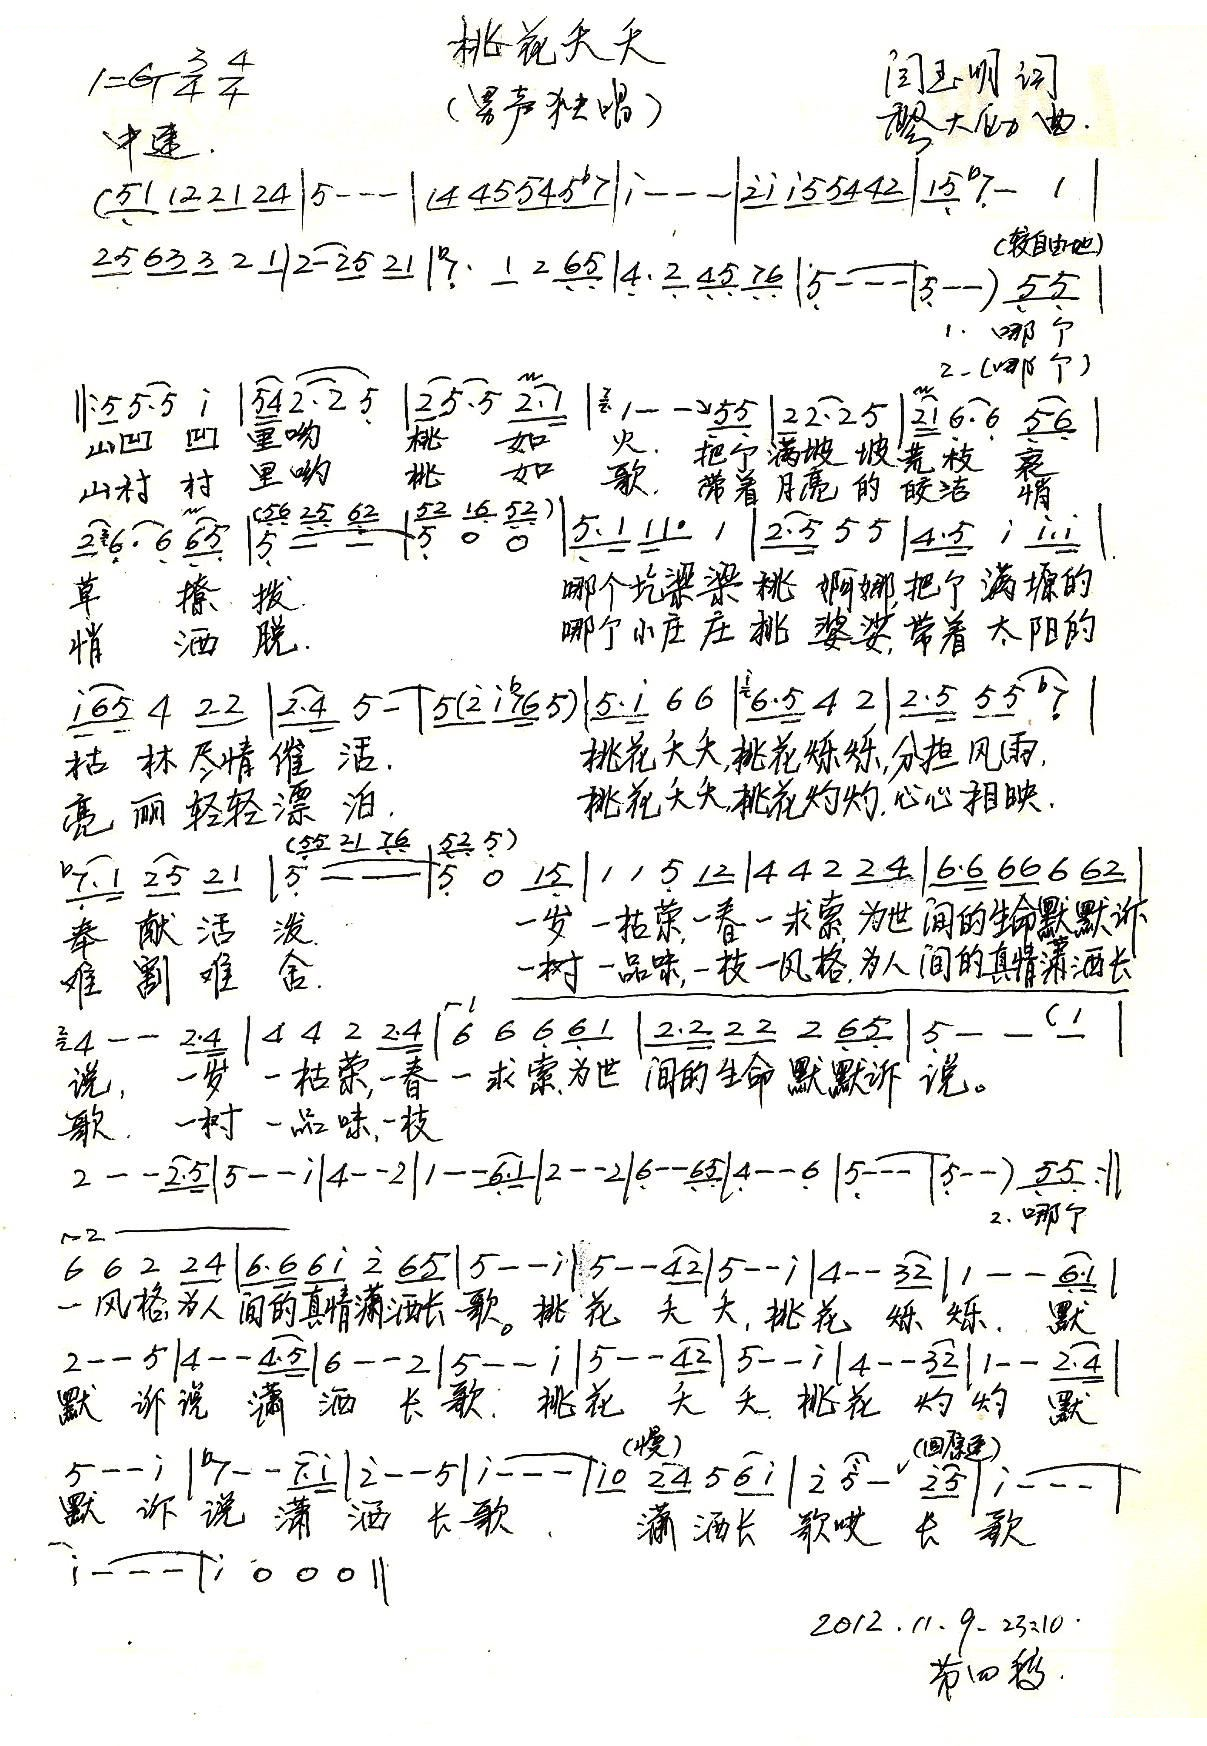 桃花夭夭
1=G 3/4 4/4
(男声独唱)
闫玉明 词
大 曲.
中速.
(51 12 21 24|5---|14 45 54 5b7|i---|2i i5 54 42|15 b7- 1|
25 63 3 2 1|2-25 21|b7. 1 2 65|4.2 45 76|5---|5--) 55|
(较自由地)
1. 哪个
2-(哪个)
||:5 5.5 i |54 2.2 5 |25.5 2.1 |1-- 55|22.25|21 6.6 56|
山凹 凹 里哟 桃 如 火. 把个满坡 坡荒枝 衰
山村 村 里哟 桃 如 歌. 带着月亮 的 皎洁 悄
(56 25 62 | 52 16 52)
26.6 65 |5 - - |5 0 0 |5.1 11. 1 |2.5 5 5 |4.5 i i.i|
草 撩 拨. 哪个圪梁梁 桃 婀娜,把个 满塬的
悄 洒 脱. 哪个小庄 庄 桃 婆娑,带着 太阳的
i65 4 22 |2.4 5-|5(2 i b765)|5.i 6 6 |6.5 4 2|2.5 55 b7|
枯 林尽情 催 活. 桃花夭夭,桃花烁烁,分担风雨.
亮 丽 轻轻漂 泊. 桃花夭夭,桃花灼灼.心心相映.
(55 21 76 | 52 5)
b7.1 25 21 |5 - - |5 0 15|1 1 5 12|4 4 2 24|6.6 66 6 62|
奉 献 活 泼. 一岁 一枯荣,一春一求索,为世 间的生命默默诉
难 割 难 舍. 一树 一品味,一枝一风格.为人 间的真情潇洒长
4-- 2.4|4 4 2 2.4|6 6 6 61|2.2 22 2 65|5--(1|
说, 一岁 一枯荣,一春一 求索,为世 间的生命 默默诉 说。
歌. 一树 一品味,一枝
2--2.5|5--i|4--2|1--6.1|2--2|6--65|4--6|5---|5--) 55:||
2.哪个
6 6 2 24|6.6 6i 2 65|5--i|5--42|5--i|4--32|1--6.1|
一风格,为人 间的真情潇洒长 歌。桃 花 夭 夭,桃花 烁 烁. 默
2--5|4--4.5|6--2|5--i|5--42|5--i|4--32|1--2.4|
默 诉说 潇 洒 长 歌. 桃花 夭 夭. 桃花 灼 灼 默
(慢)
(回原速)
5--i|b7--7.i|2--5|i---|i0 24 5 6i|2 5- 25|i---|
默 诉 说 潇 洒 长歌. 潇 洒长 歌哎 长 歌
i---|i 0 0 0||
2012.11.9-23:10.
第四稿.